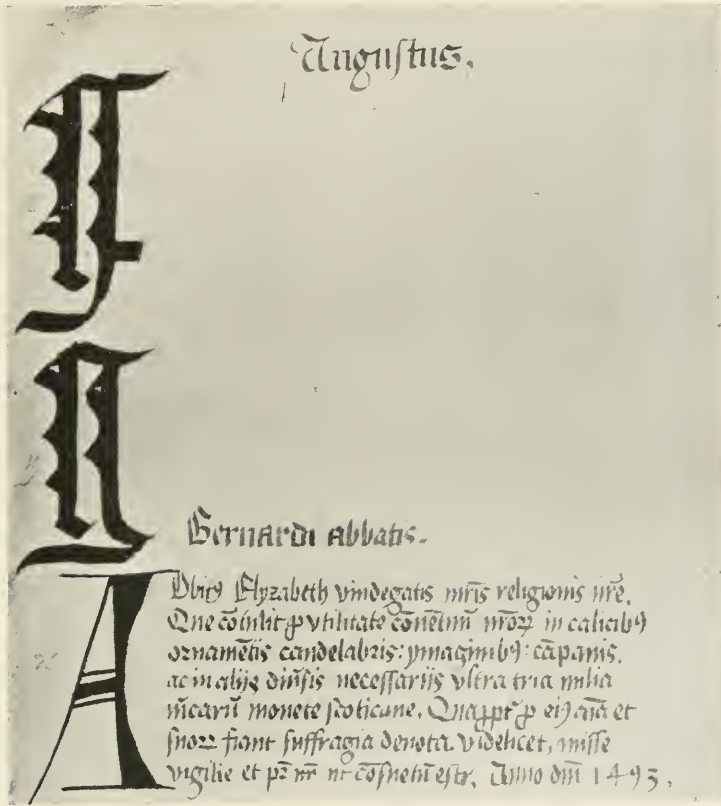 Augustus.
F
G
Bernardi abbatis.
A
Obitꝰ Elyzabeth vindegatis mr̄is religionis nr̄e.
Que cōtulit ꝓ vtilitate cōuentuū nr̄oꝝ in calicibꝰ
ornamētis candelabris: ymaginibꝰ: cāpanis.
ac in alijs diūsis necessariis vltra tria milia
monete scoticane. Quaꝓpt ꝓ eiꝰ aīa et
suoꝝ fiant suffragia deuota. videlicet, misse
vigilie et pr̄ nr̄ vt cōsuetū est. Anno dm̄ 1493.